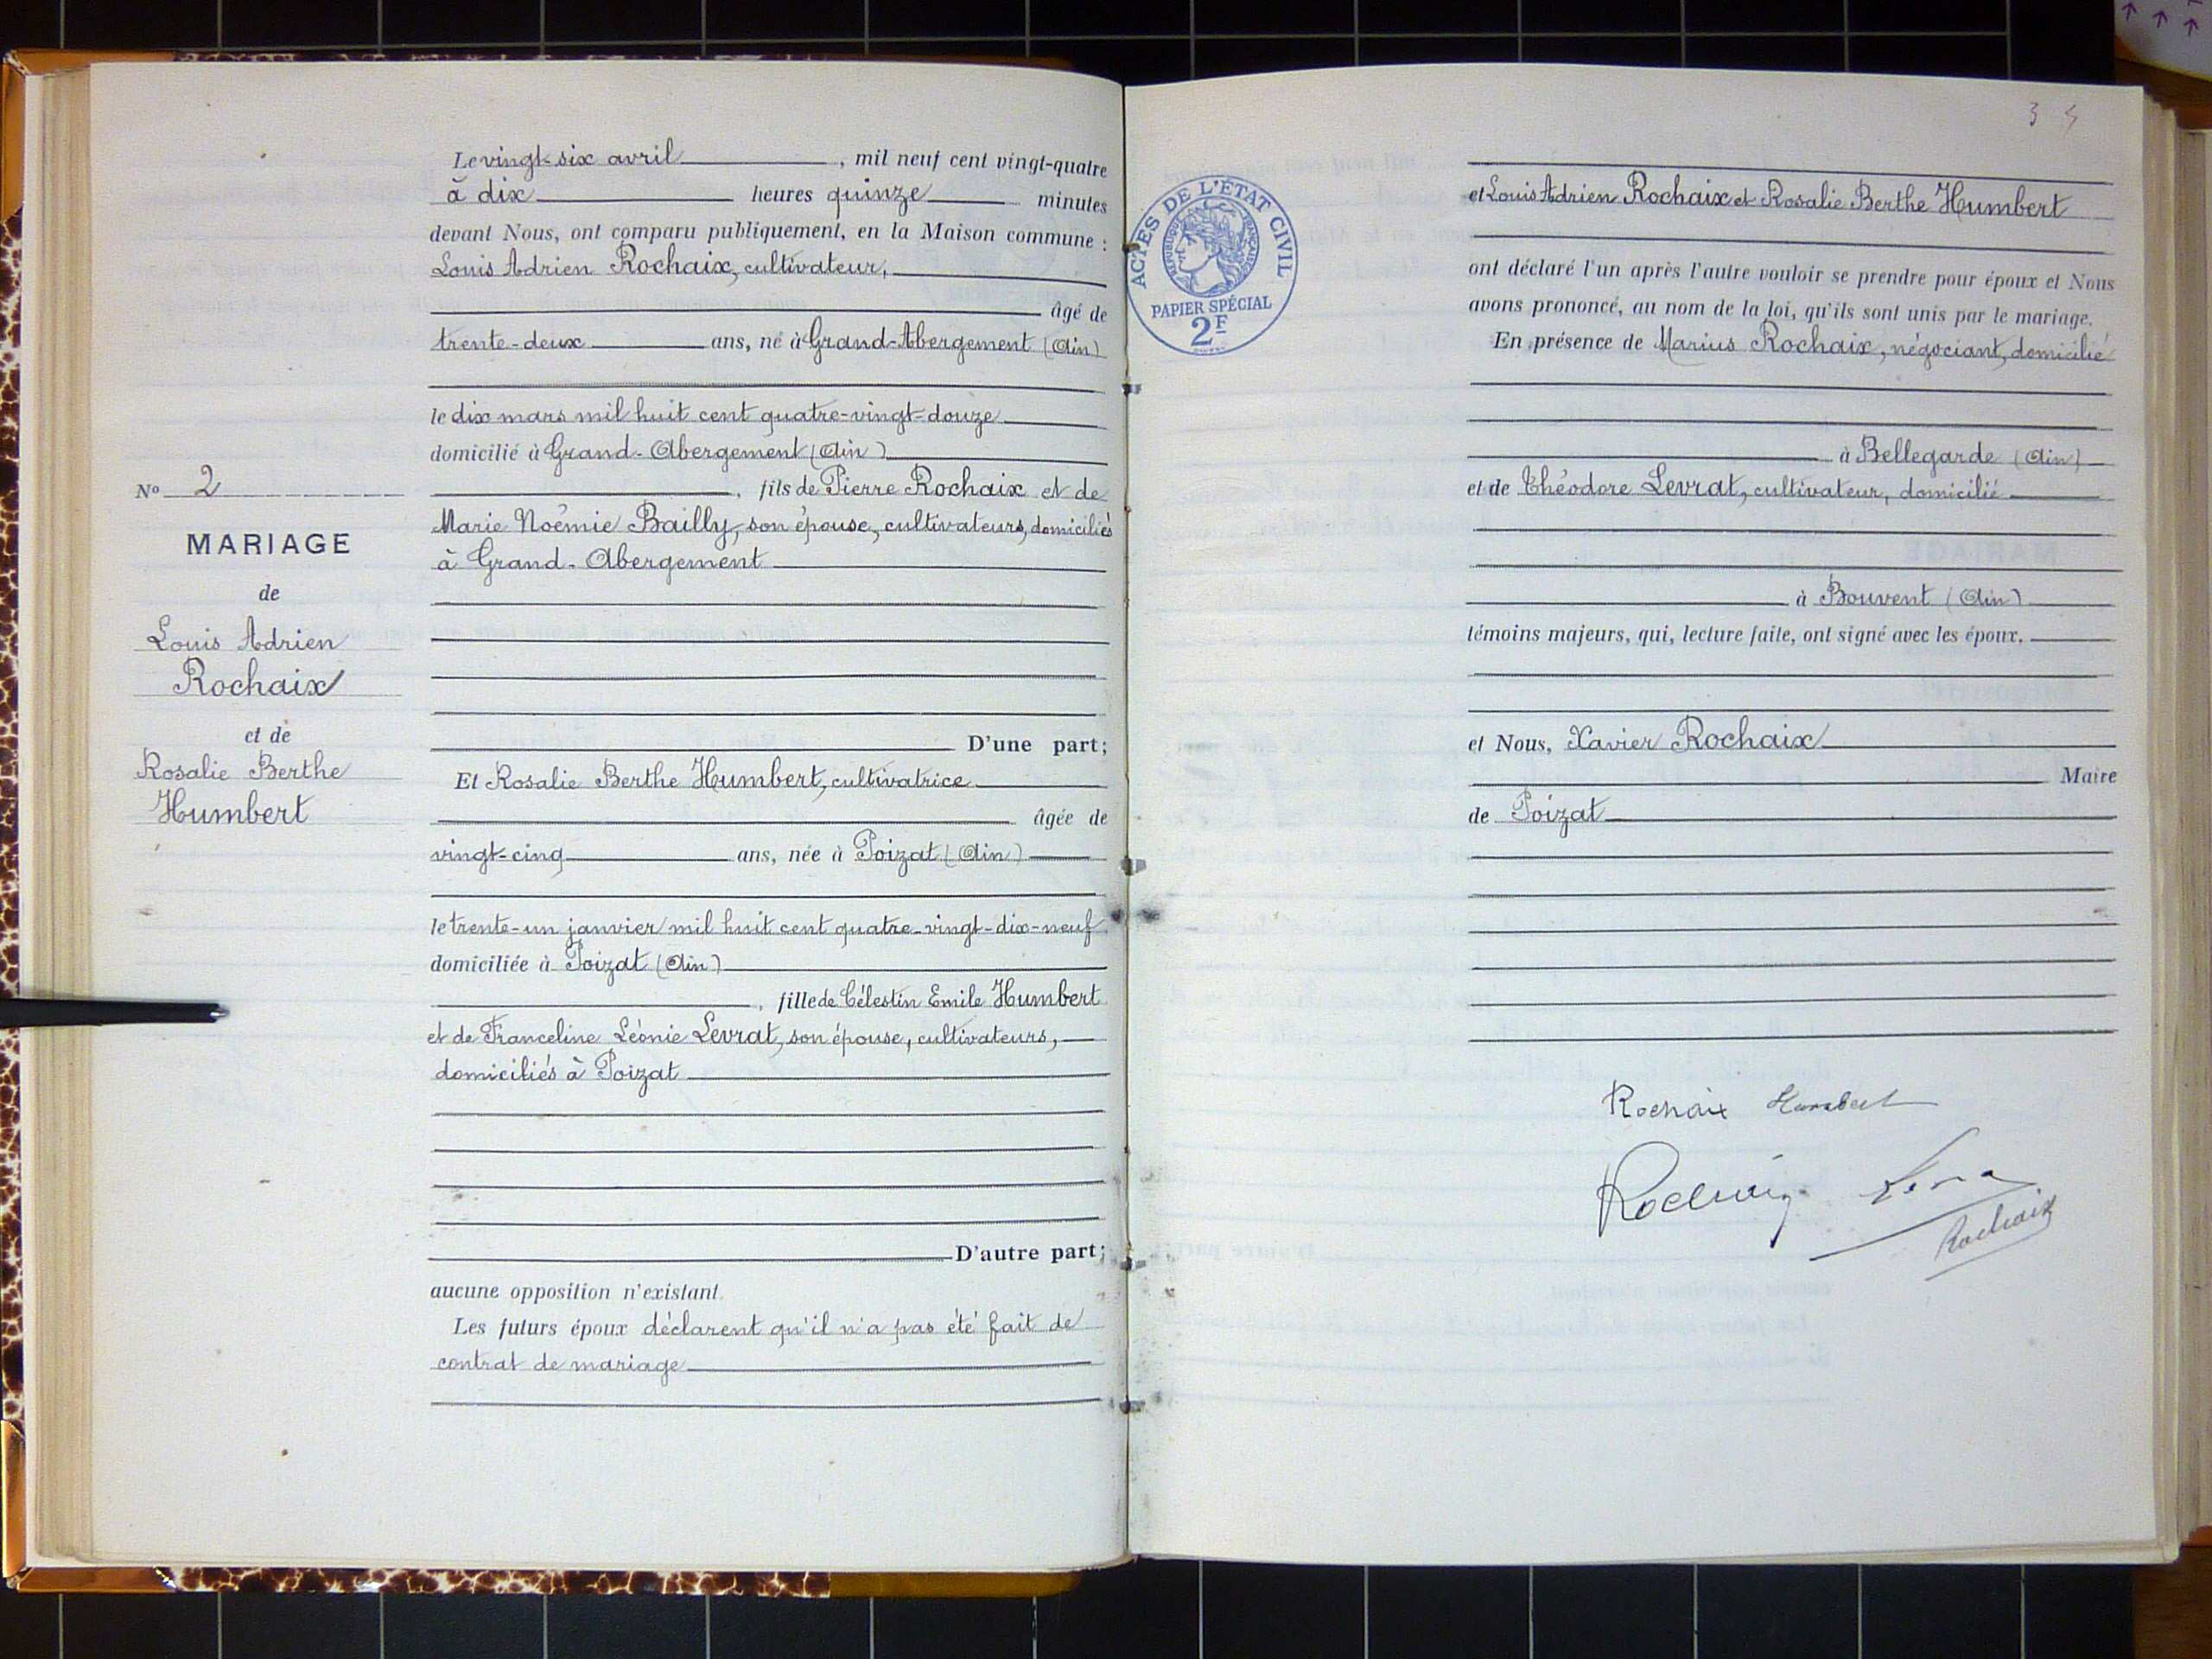 Le vingt-six avril, mil neuf cent vingt-quatre
à dix heures quinze minutes
devant Nous, ont comparu publiquement, en la Maison commune :
Louis Adrien Rochaix, cultivateur,
âgé de
trente-deux ans, né à Grand-Abergement (Ain)
le dix mars mil huit cent quatre-vingt-douze
domicilié à Grand-Abergement (Ain)
, fils de Pierre Rochaix et de
Marie Noémie Bailly, son épouse, cultivateurs, domiciliés
à Grand-Abergement
D'une part;
Et Rosalie Berthe Humbert, cultivatrice
âgée de
vingt-cinq ans, née à Poizat (Ain)
le trente-un janvier mil huit cent quatre-vingt-dix-neuf
domiciliée à Poizat (Ain)
, fille de Célestin Emile Humbert
et de Franceline Léonie Levrat, son épouse, cultivateurs,
domiciliés à Poizat
D'autre part;
aucune opposition n'existant.
Les futurs époux déclarent qu'il n'a pas été fait de
contrat de mariage
No 2
MARIAGE
de
Louis Adrien
Rochaix
et de
Rosalie Berthe
Humbert
ACTES DE L'ÉTAT CIVIL
RÉPUBLIQUE FRANÇAISE
PAPIER SPÉCIAL
2F
3
et Louis Adrien Rochaix et Rosalie Berthe Humbert
ont déclaré l'un après l'autre vouloir se prendre pour époux et Nous
avons prononcé, au nom de la loi, qu'ils sont unis par le mariage.
En présence de Marius Rochaix, négociant, domicilié
à Bellegarde (Ain)
et de Théodore Levrat, cultivateur, domicilié
à Bouvent (Ain)
témoins majeurs, qui, lecture faite, ont signé avec les époux.
et Nous, Xavier Rochaix
Maire
de Poizat
Rochaix Humbert
Rochaix
Rochaix